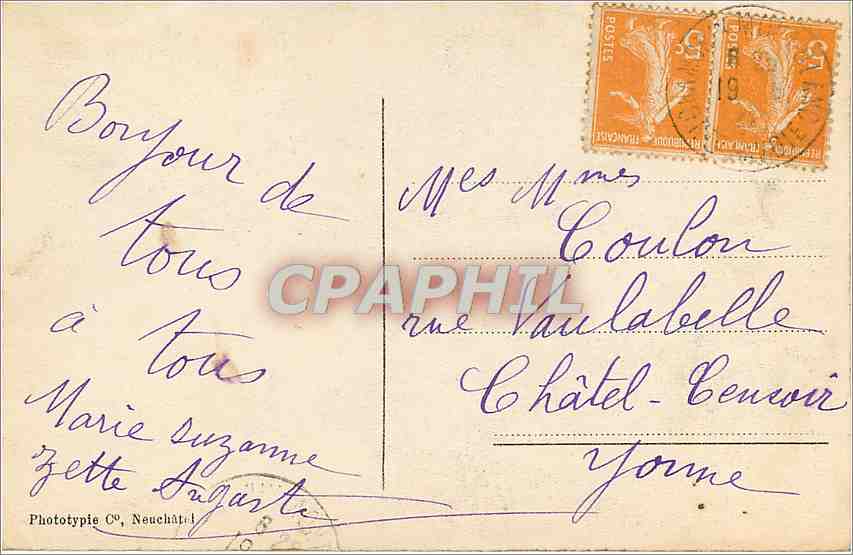 Bonjour de
tous
à tous
Marie Suzanne
Zette
Phototypie Co, Neuchâtel
5c
POSTES
REPUBLIQUE FRANÇAISE
5c
POSTES
19
Mes Mmes
Coulon
rue Vaulabelle
Châtel-Censoir
Yonne
CPAPHIL